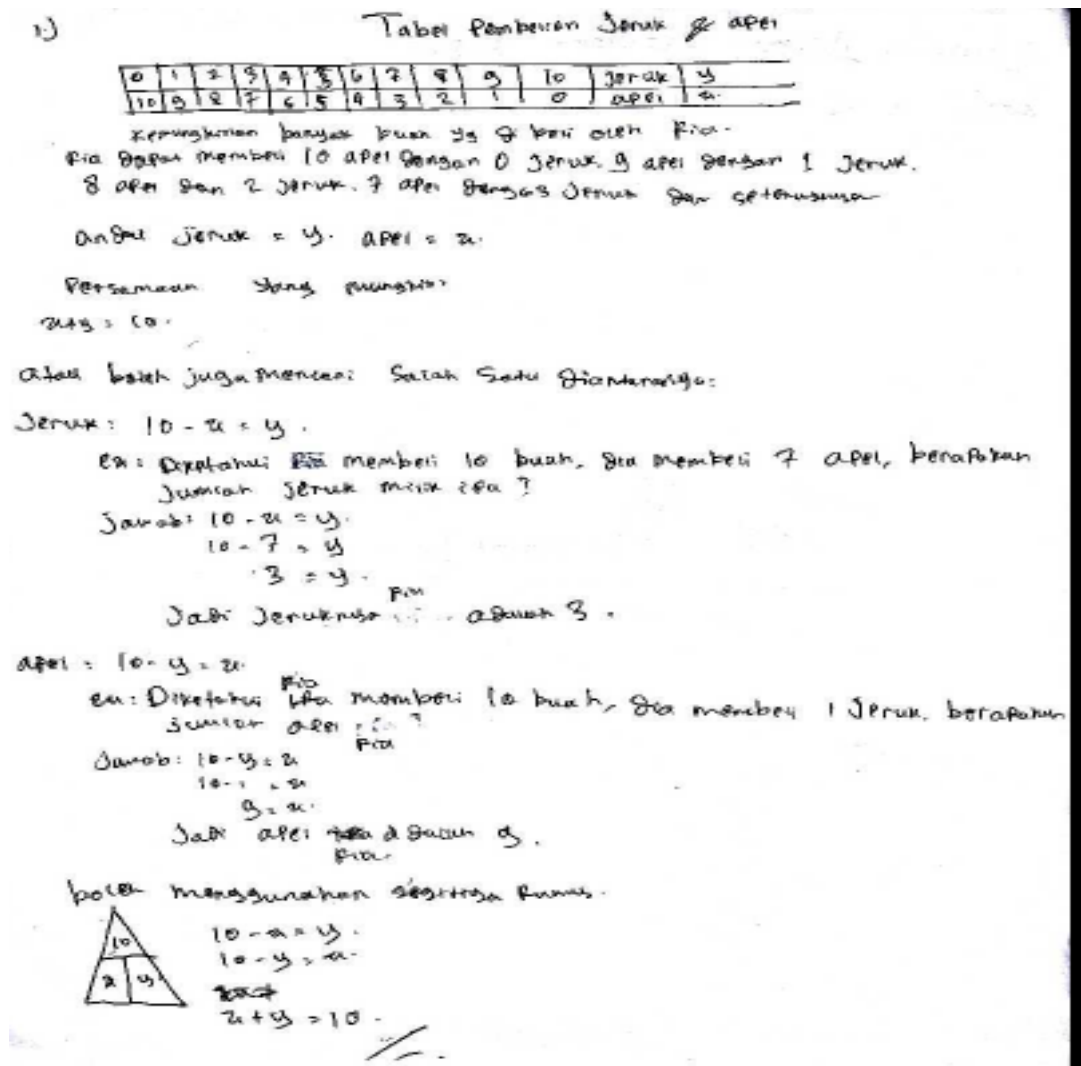 1.) Tabel Pembelian Jeruk & apel
0 1 2 3 4 5 6 7 8 9 10 Jeruk y
10 9 8 7 6 5 4 3 2 1 0 apel x
kemungkinan banyak buah yg di beli oleh Ria.
Ria dapat membeli 10 apel dengan 0 Jeruk. 9 apel dengan 1 Jeruk.
8 apel dan 2 Jeruk. 7 apel dengas Jeruk dan seterusnya
andai jeruk = y. apel = x.
Persamaan yang mungkin:
x+y = 10.
atau boleh juga mencari salah satu diantaranya:
Jeruk: 10 - x = y.
ex: Diketahui Ria membeli 10 buah, dia membeli 7 apel, berapakah
Jumlah Jeruk milik ?
Jawab: 10 - x = y.
10 - 7 = y
3 = y.
Ria
Jadi Jeruknya adalah 3.
apel = 10 - y = x.
Ria
ex: Diketahui membeli 10 buah, dia membeli 1 Jeruk. berapakah
jumlah apel ?
Ria
Jawab: 10 - y = x
10 - 1 = x
9 = x.
Jadi apel adalah 9.
Ria.
boleh menggunakan segitiga Rumus.
10
x y
10 - x = y.
10 - y = x.
x + y = 10.